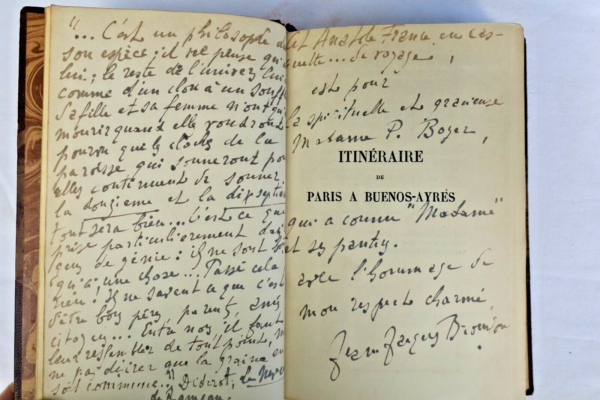 "... C'est un philosophe de
son espèce; il ne pense qu'à
lui; le reste de l'univers lui est
comme d'un clou à un soufflet
Sa fille et sa femme n'ont qu'à
mourir quand elles voudront
pourvu que les cloches de la
paroisse qui sonneront pour
elles continuent de sonner
la douzième et la dix septième
tout sera bien... C'est ce que je
prise particulièrement dans les
gens de génie: ils ne sont bons
qu'à une chose... Passé cela
rien! Ils ne savent ce que c'est
d'être bons pères, parents, amis
citoyen... Entre nous, il faut
leur ressembler de tout point, mais
ne pas désirer que la graine en
soit commune." Diderot, Le Neveu
de Rameau.
Cet Anatole France en cas-
quette... de voyage,
est pour
la spirituelle et gracieuse
Madame P. Boyer,
ITINÉRAIRE
DE
PARIS A BUENOS-AYRES
qui a connu "Madame"
et ses
avec l'hommage de
mon respect charmé,
Jean Jacques Brousson